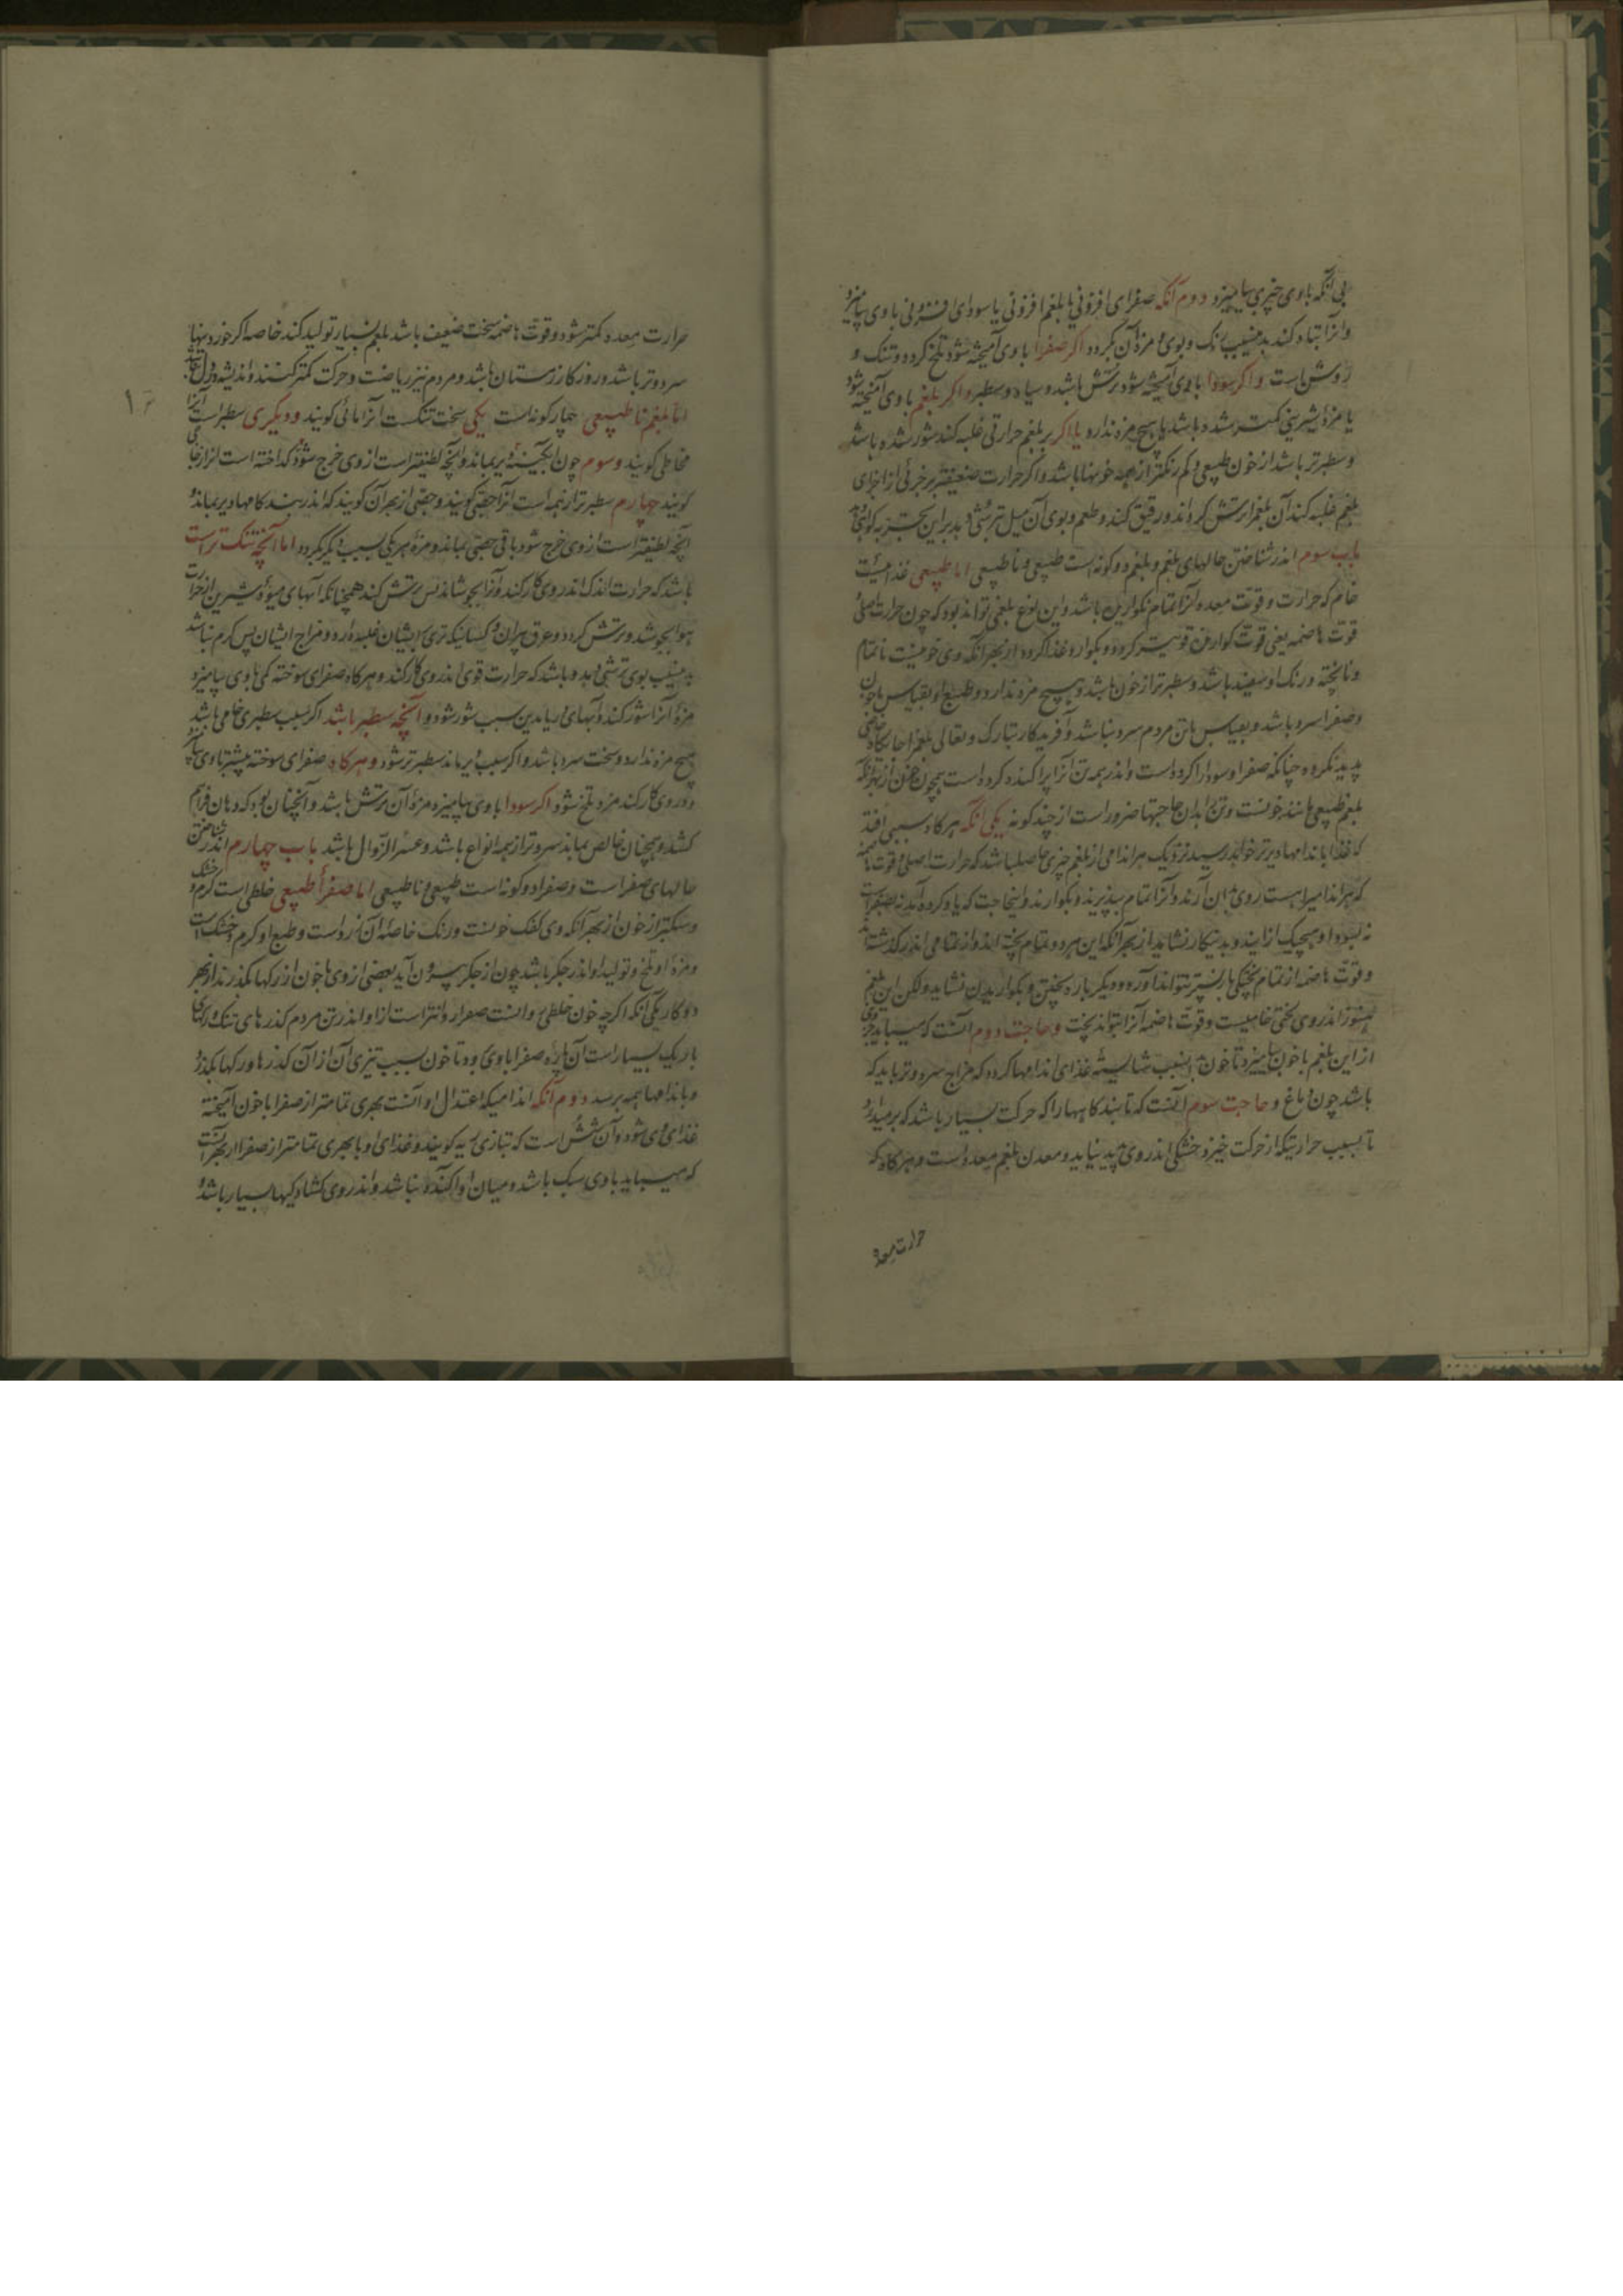 بی آنکه با وی چیزی بیامیزد دوم آنکه صفرای افزونی یا بلغم افزونی یا سودای افزونی با وی بیامیزد
و آنرا تباه کند بدینسبب رنک و بوی و مزهٔ آن بکردد اکر صفرا با وی آمیخته شود تلخ کردد و تنک و
روشن است و اکر سودا با وی آمیخته شود ترش باشد و سیاه و سطبر و اکر بلغم با وی آمیخته شود
یا مزهٔ شیرینی کمتر شده باشد یا هیچ مزه ندارد یا اکر بر بلغم حرارتی غلبه کند شور شده باشد
و سطبرتر باشد از خون طبیعی و کم رنکتر از همه خونها باشد و اکر حرارت ضعیفتر بر جزئی از اجزای
بلغم غلبه کند آن بلغم را ترش کرداند و رقیق کند و طعم و بوی آن میل ترشی دهد براین
باب سوم اندر شناختن حالهای بلغم و بلغم دو کونه است طبیعی و ناطبیعی اما طبیعی غذائیست
خام که حرارت و قوت معده آنرا تمام نکواریده باشد و این نوع بلغمی تواند بود که چون حرارت اصلی و
قوت هاضمه یعنی قوت کوارنده قویتر کردد و بکوارد و غذا کردد از بهر آنکه وی خونیست ناتمام
و ناپخته و رنک او سفید باشد و سطبرتر از خون باشد و هیچ مزه ندارد و طبع او بقیاس با خون
و صفرا سرد باشد و بقیاس با تن مردم سرد نباشد و آفریدکار تبارک و تعالی بلغم را جایکاه خاصی
پدید نکرده چنانکه صفرا و سودا را کرده است و اندر همه تن آنرا پراکنده کرده است همچون خون از بهر آنکه
بلغم طبیعی مانند خونست و تن را بدان حاجتها ضرور است از چند کونه یکی آنکه هرکاه سببی افتد
که غذا باندامها دیرتر خواهد رسید نزدیک هر اندامی از بلغم چیزی حاصل باشد که حرارت اصلی و قوت هاضمه
که هر اندامیرا هست روی بدان آرند و آنرا تمام بپزند و بکوارند و اینحاجت که یاد کرده آمد نه بصفراست
نه بسودا و هیچیک از ایندو بدینکار نشاید از بهر آنکه این هر دو تمام پخته اند و از تمامی اندر کذشته اند
و قوت هاضمه از تمام پختکی باز پستر نتواند آورد و دیکر باره پختن و بکواریدن نشاید ولکن این بلغم
هنوز اندر وی لختی خامیست و قوت هاضمه آنرا بتواند پخت و حاجت دوم آنست که میباید جزوی
از این بلغم با خون بیامیزد تا خون بدینسبب شایستهٔ غذای اندامها کردد که مزاج سرد و تر باید که
باشد چون دماغ و حاجت سوم آنست که تا بندکاهها را که حرکت بسیار باشد تر میدارد
تا بسبب حرارتیکه از حرکت خیزد خشکی اندر وی پدید نیاید و معدن بلغم معده است و هرکاه که
حرارت معده
حرارت معده کمتر شود و قوت هاضمه سخت ضعیف باشد بلغم بسیار تولید کند خاصه اکر خوردنیها
سرد و تر باشد و روزکار زمستان باشد و مردم نیز ریاضت و حرکت کمتر کنند
اما بلغم ناطبیعی چهار کونه است یکی سخت تنکست آنرا مائی کویند و دیکری سطبر است آنرا
مخاطی کویند و سوم چون آبکینه و دیر بماند و آنچه لطیفتر است از وی خرج شود کداخته است آنرا زجاجی
کویند چهارم سطبرتر از همه است آنرا جصّی کویند و جصّی از بهر آن کویند که اندر بندکاهها دیر بماند و
آنچه لطیفتر است از وی خرج شود باقی جصّی بماند و مزهٔ هر یکی بسبب دیکر بکردد اما آنچه تنک تر است
باشد که حرارت اندک اندر وی کار کند و آنرا بجوشاند پس ترش کند همچنانکه آبهای میوهٔ شیرین از حرارت
هوا بجوشد و ترش کردد و عرق پیران و کسانیکه تری بر ایشان غلبه دارد و مزاج ایشان بس کرم نباشد
بدینسبب بوی ترشی دهد و باشد که حرارت قوی اندر وی کار کند و هرکاه صفرای سوخته کمی با وی بیامیزد
مزهٔ آنرا شور کند و آبهای دریا بدین سبب شور شود و آنچه سطبر باشد اکر بسبب سطبری خامی باشد
هیچ مزه ندارد و سخت سرد باشد و اکر بسبب دیر ماند سطبرتر شود و هرکاه صفرای سوخته بیشتر با وی بیامیزد
و در وی کار کند مزه تلخ شود اکر سودا با وی بیامیزد مزهٔ آن ترش باشد و آنچنان بود که دهان فراهم
کشد و همچنان خالص بماند سردتر از همه انواع باشد و عسر الزوال باشد باب چهارم اندر شناختن
حالهای صفراست و صفرا دو کونه است طبیعی و ناطبیعی اما صفرأ طبیعی خلطی است کرم و خشک
و سبکتر از خون از بهر آنکه وی کفک خونست و رنک خاصهٔ آن زرد است و طبع او کرم و خشکست
و مزهٔ او تلخ و تولید او اندر جکر باشد چون از جکر بیرون آید بعضی از وی با خون از رکها بکذرد از بهر
دو کار یکی آنکه اکرچه خون خلطی روانست صفرا روانتر است از او و اندر تن مردم کذرهای تنک و رکهای
باریک بسیار است آن پاره صفرا با وی بود تا خون بسبب تیزی آن از آن کذرها و رکها بکذرد
و باندامها همه برسد دوم آنکه اندامیکه اعتدال او آنست بهری تمامتر از صفرا با خون آمیخته
غذای وی شود و آن شش است که تبازی ریه کویند و غذای او با بهری تمامتر از صفرا از بهر آنست
که میباید با وی سبک باشد و میان او آکنده نباشد و اندر وی کشادکیها بسیار باشد و